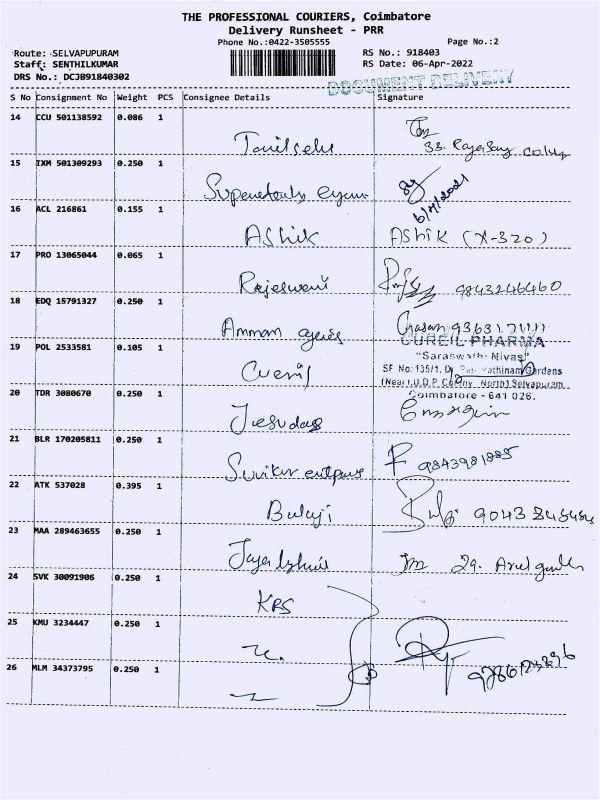 THE PROFESSIONAL COURIERS, Coimbatore
Delivery Runsheet - PRR
Phone No.:0422-3505555
Page No.:2
Route: SELVAPUPURAM
RS No.: 918403
Staff: SENTHILKUMAR
RS Date: 06-Apr-2022
DRS No.: DCJ891840302
DOCUMENT DELIVERY
S No Consignment No Weight PCS Consignee Details Signature
14 CCU 501138592 0.086 1
15 IXM 501309293 0.250 1
16 ACL 216861 0.155 1
Ashik ASHIK (X-320)
17 PRO 13065044 0.065 1
Rajeswari 9843246460
18 EDQ 15791327 0.250 1
Ammam
19 POL 2533581 0.105 1
CUREIL PHARMA
"Saraswathi Nivas"
SF No: 135/1, Gardens
(Near T.U.D.P Colony North) Selvapuram
Coimbatore - 641 026.
20 TDR 3080670 0.250 1
Jesudas
21 BLR 170205811 0.250 1
9843981885
22 ATK 537028 0.395 1
Balaji
23 MAA 289463655 0.250 1
24 SVK 30091906 0.250 1
KRS
25 KMU 3234447 0.250 1
26 MLM 34373795 0.250 1